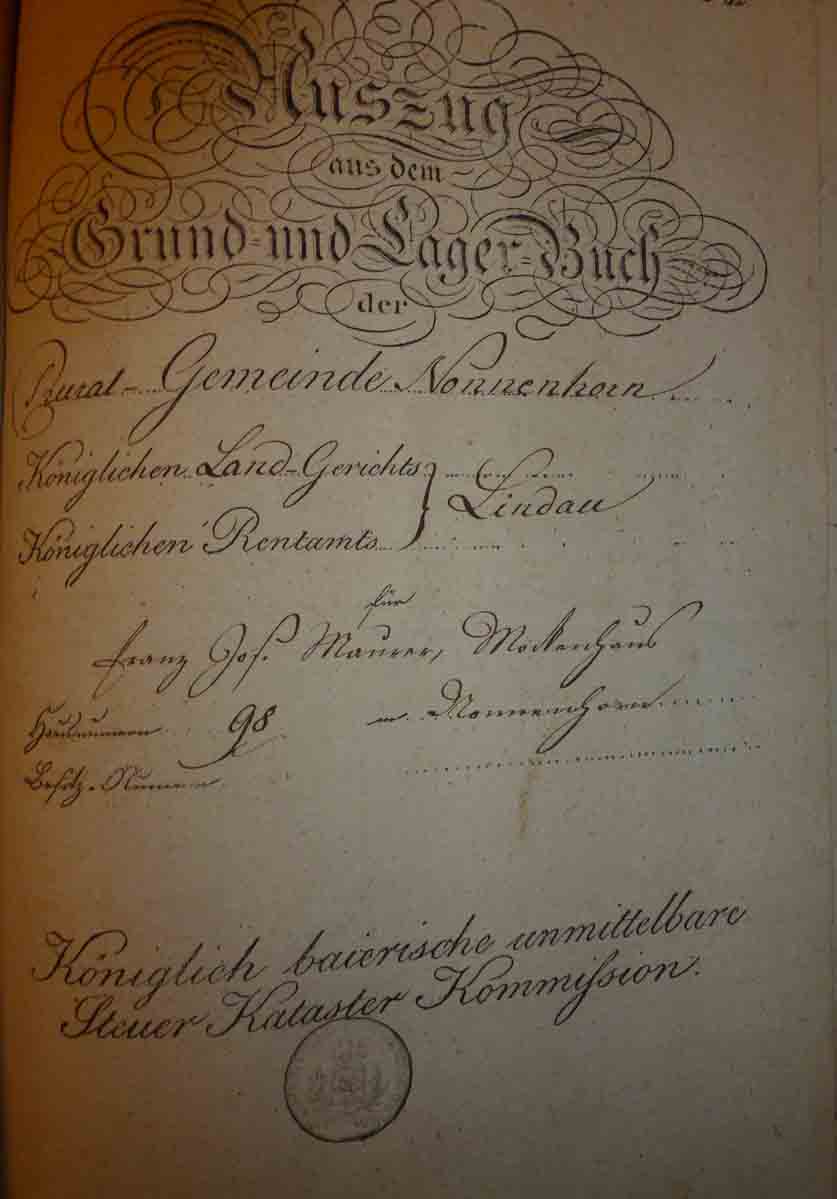 Auszug
aus dem
Grund- und Lager-Buch
der
Rural-Gemeinde Nonnenhorn
Königlichen Land-Gerichts } Lindau
Königlichen Rentamts
für
Franz Jos. Maurer, Mockenhaus
Hausnummern 98 in Nonnenhorn
Besitz-Nummern
Königlich baierische unmittelbare
Steuer Kataster Kommißion.